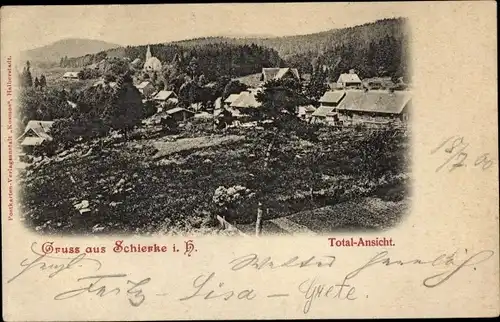 Postkarten-Verlagsanstalt "Kosmos", Halberstadt.
Gruss aus Schierke i. H.
Total-Ansicht.
Walter
Fritz - Lisa - Grete.